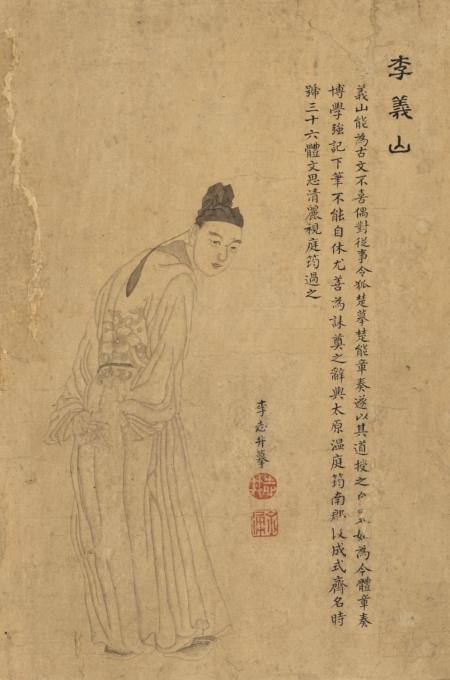 李義山
義山能為古文不喜偶對從事令狐楚幕楚能章奏遂以其道授之為今體章奏
博學強記下筆不能自休尤善為誄奠之辭與太原温庭筠南郡段成式齊名時
號三十六體文思清麗視庭筠過之
李志升摹